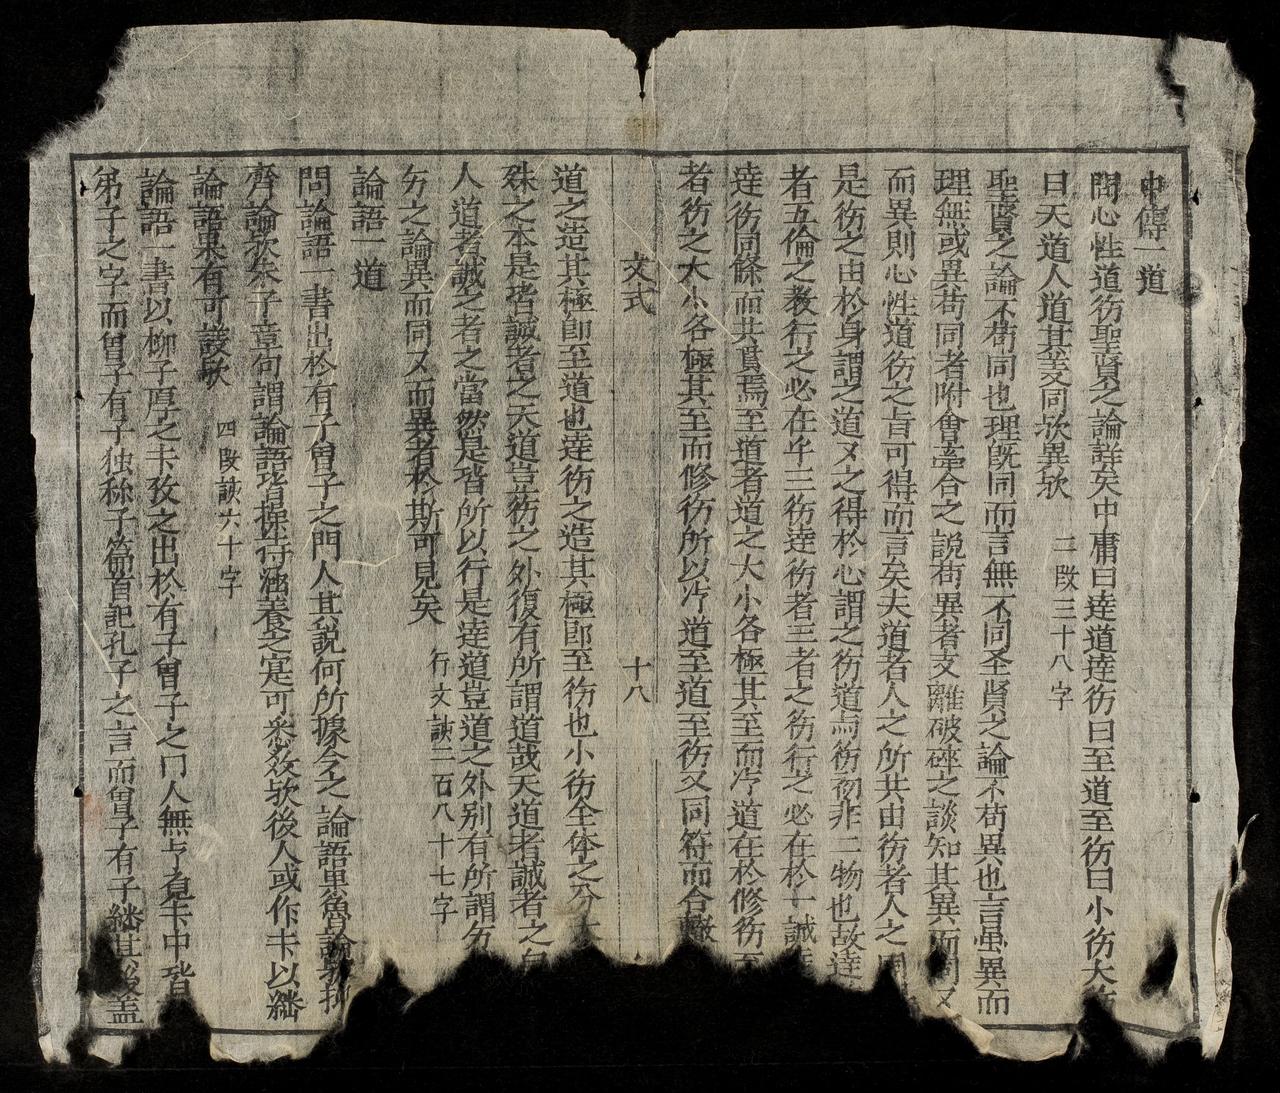 中傳一道
問心性道㣲聖賢之論詳矣中庸曰達道達㣲曰至道至㣲曰小㣲大㣲
曰天道人道其義同欤異欤 二段三十八字
聖賢之論不苟同也理既同而言無不同圣賢之論不苟異也言虽異而
理無或異苟同者附會牽合之説苟異者支離破碎之談知其異而同又
而異則心性道㣲之旨可得而言矣夫道者人之所共由㣲者人之同
是㣲之由於身謂之道又之得於心謂之㣲道与㣲初非二物也故達
者五倫之教行之必在乎三㣲達㣲者三者之㣲行之必在於一誠
達㣲同條而共貫焉至道者道之大小各極其至而凝道在於修㣲至
者㣲之大小各極其至而修㣲所以凝道至道至㣲又同符而合轍
文式 十八
道之造其極即至道也達㣲之造其極即至㣲也小㣲全体之分
殊之本是皆誠者之天道豈㣲之外復有所謂道哉天道者誠者之自
人道者誠之者之當然是皆所以行是達道豈道之外别有所謂
之論異而同又而異者於斯可見矣 行文該二百八十七字
論語一道
問論語一書出於有子曾子之門人其說何所據今之論語果魯論欤抑
齊論欤朱子章句謂論語皆操存涵養之定可悉数欤後人或作卞以繼
論語果有可議欤 四段該六十字
論語一書以柳子厚之卞攷之出於有子曾子之门人無亏書中皆
弟子之字而曾子有子独称子篇首記孔子之言而曾子有子繼其後盖